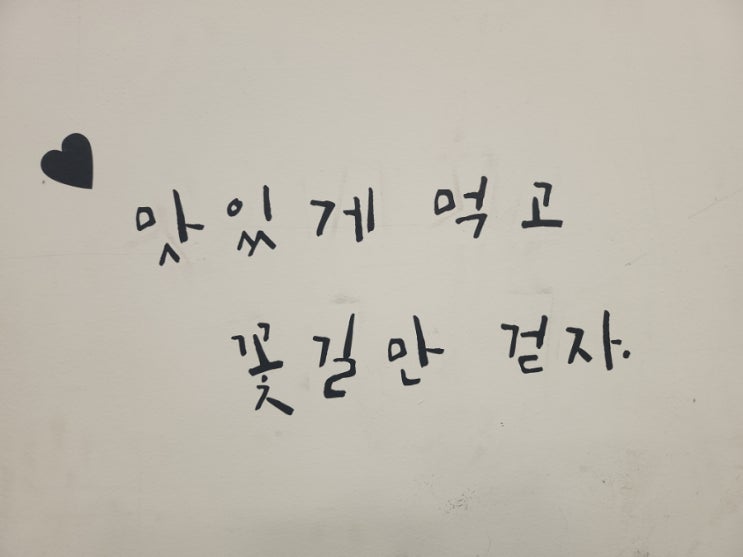 맛있게 먹고
꽃길만 걷자.